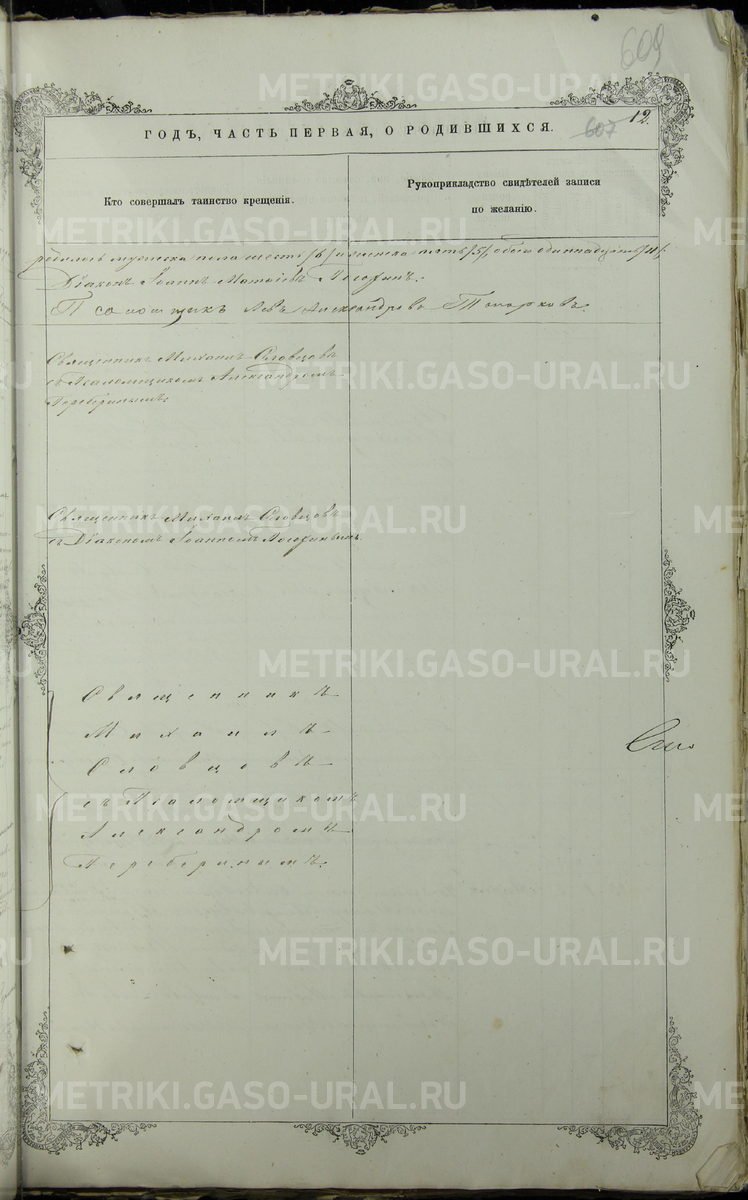 609
607
12.
ГОДЪ, ЧАСТЬ ПЕРВАЯ, О РОДИВШИХСЯ.
Кто совершалъ таинство крещенія.
Рукоприкладство свидѣтелей записи
по желанію.
мужеска пола шесть /6/ женска пять /5/, обоего одиннадцать /11/.
Діаконъ Іоаннъ
Псаломщикъ Левъ Александровъ Топорковъ.
Священникъ Михаилъ Словцовъ
съ Псаломщикомъ Александромъ
Переберинымъ.
Священникъ Михаилъ Словцовъ
съ Діакономъ Іоанномъ
Священникъ
Михаилъ
Словцовъ
съ Псаломщикомъ
Александромъ
Переберинымъ.
METRIKI.GASO-URAL.RU